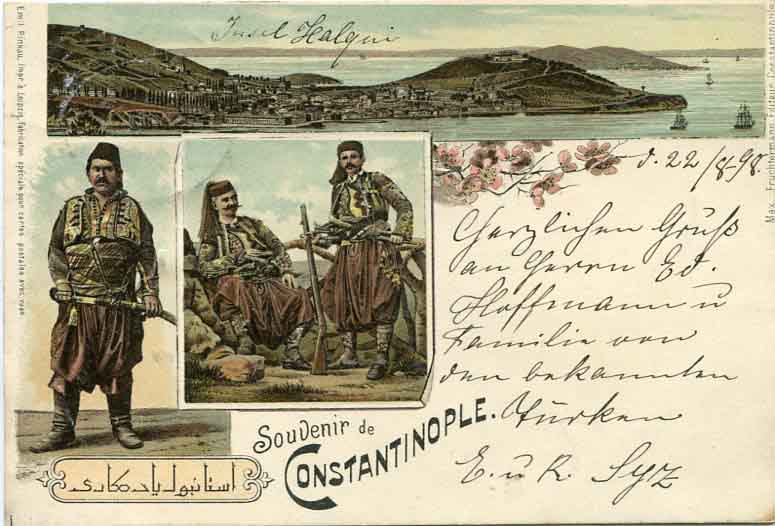 Insel Halqui
Emil Pinkau, Impr. à Leipzig, fabrication spéciale pour cartes postales avec vues
Max Fruchtermann, Editeur, Constantinople.
d. 22/8 98.
Herzlichen Gruß
an Herrn Ed.
Hoffmann u
Familie von
den bekannten
Türken
E. u R. Syz
Souvenir de
CONSTANTINOPLE.
استانبول یادکاری